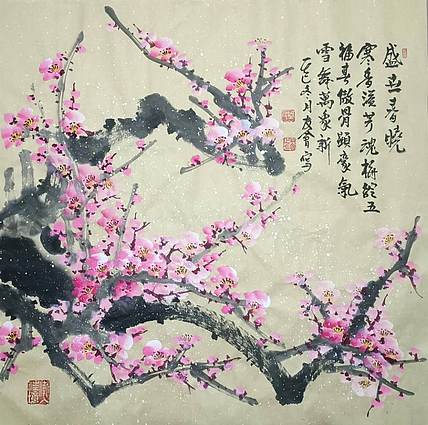 盛世春晓
寒香凝芳魂梅绽五
福春傲骨顕豪气
雪舞万象新
乙巳冬月友會写